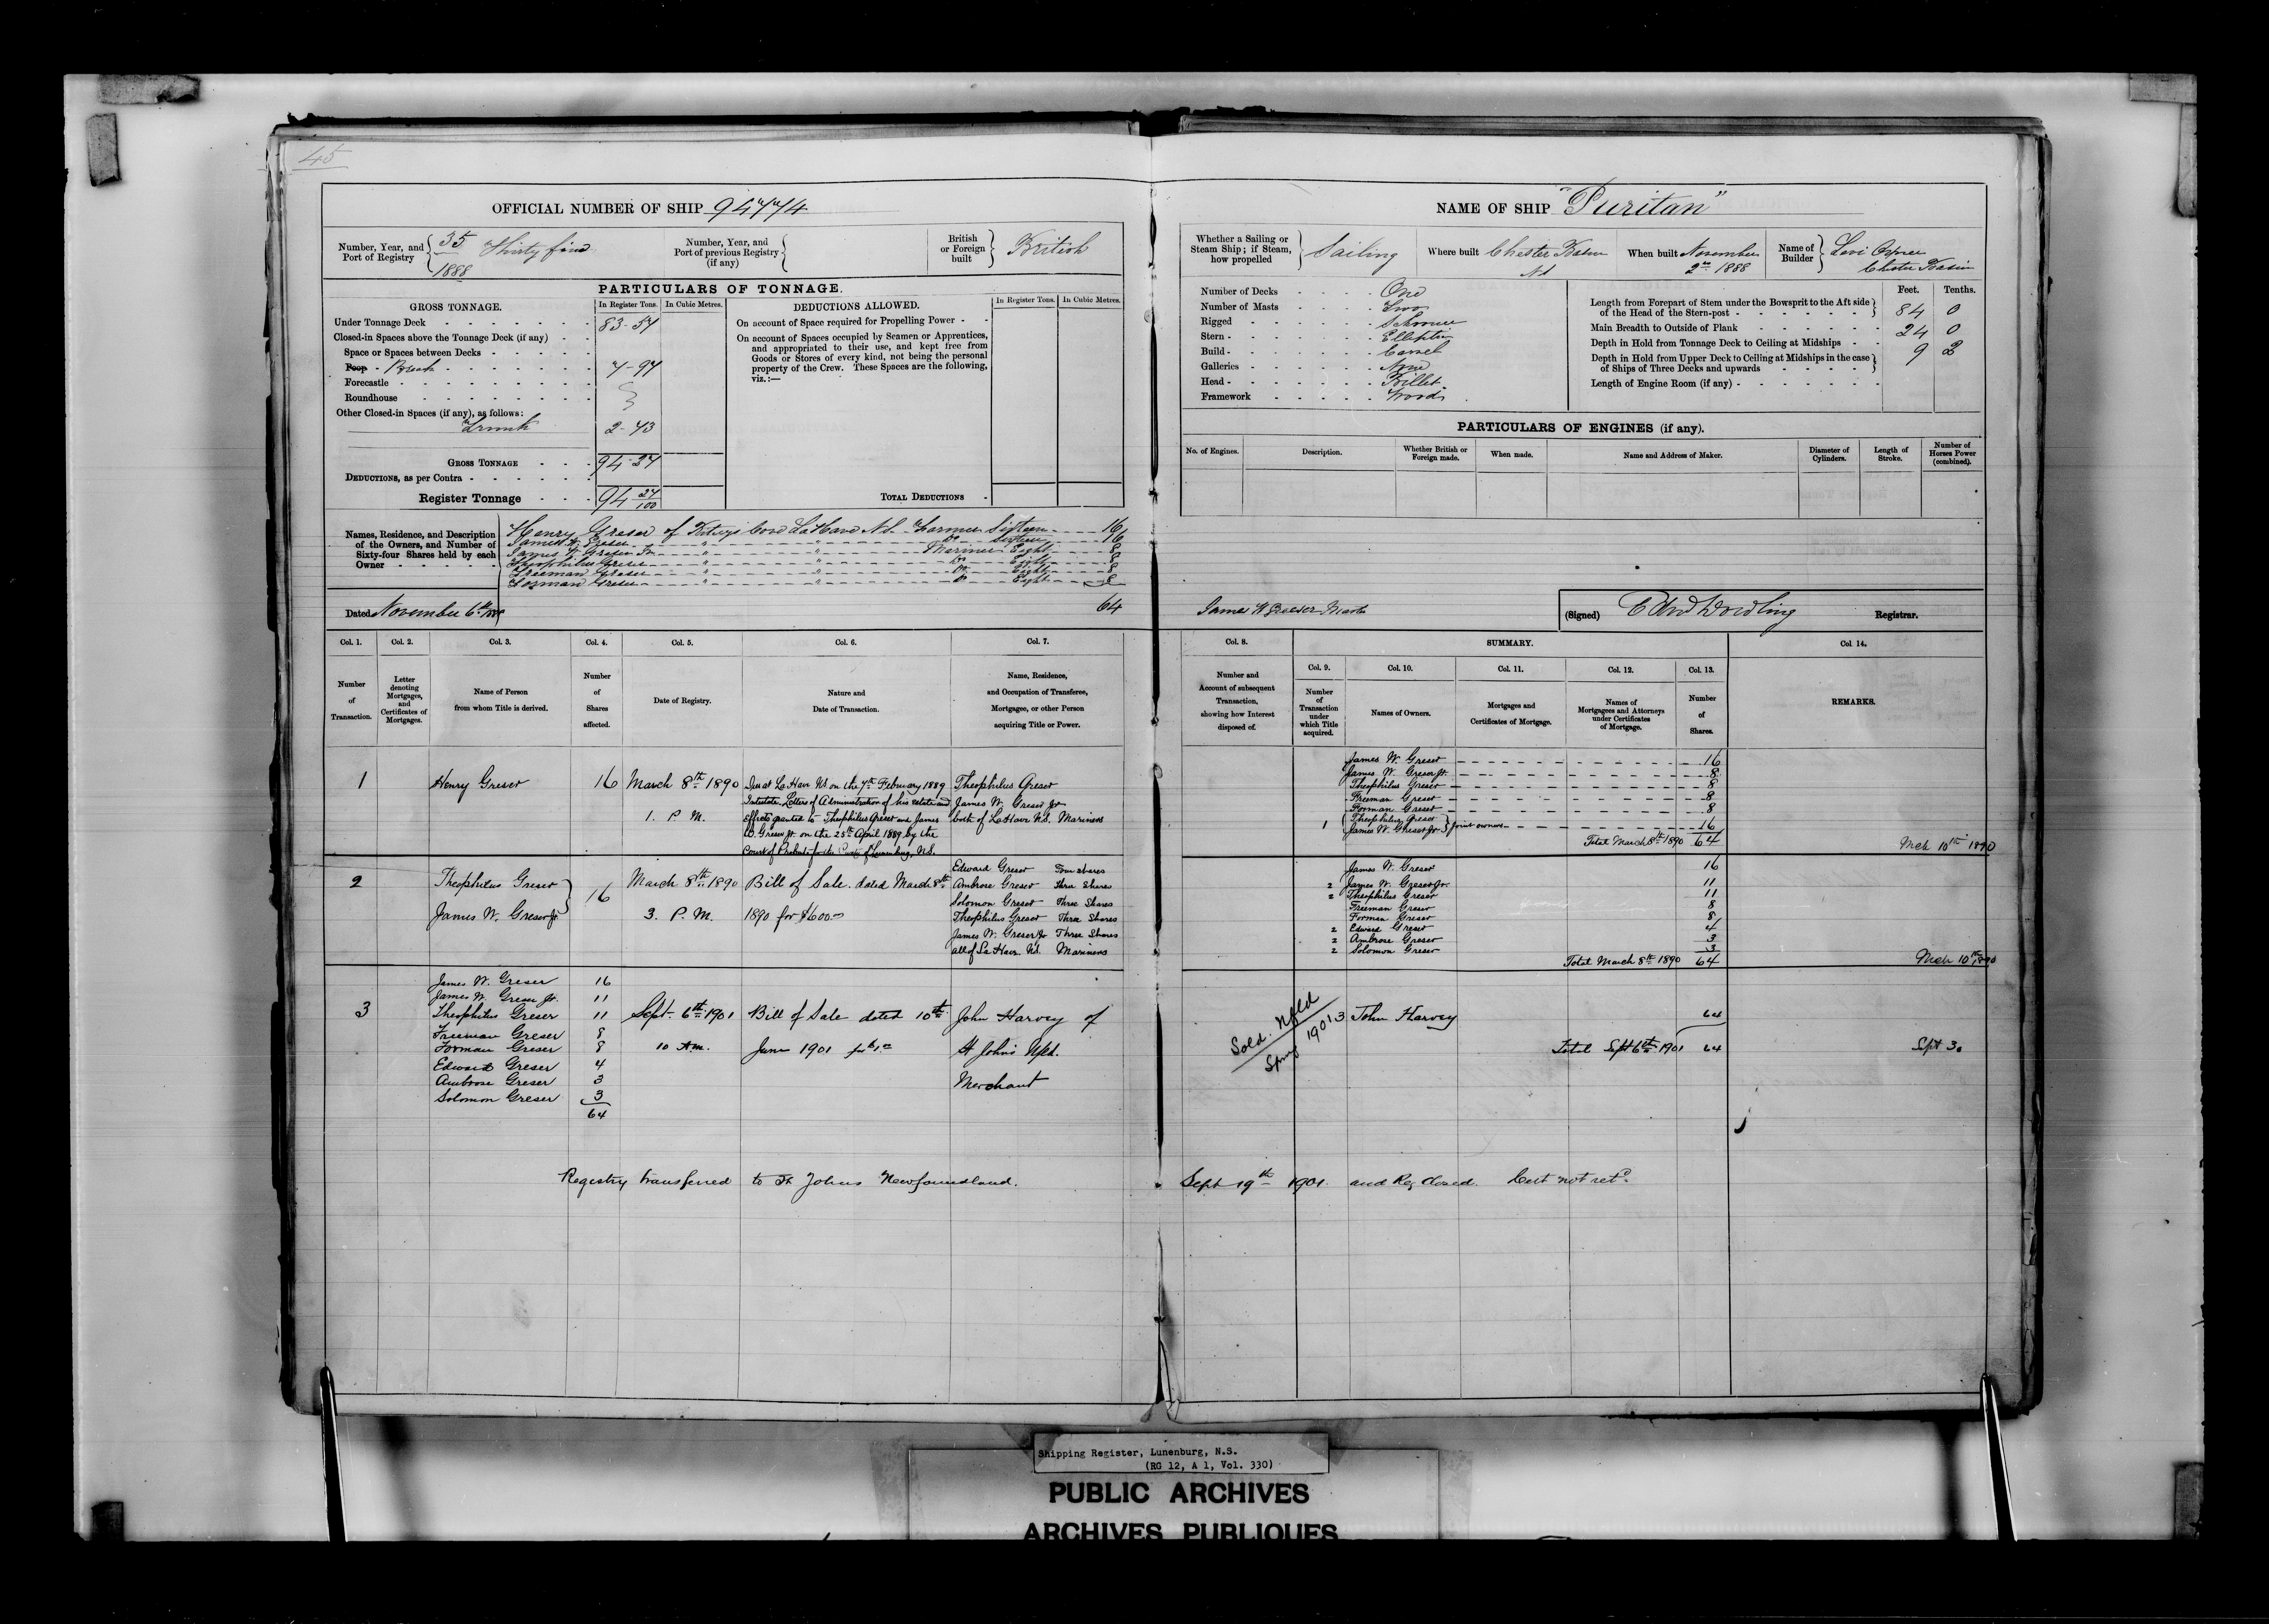 45
OFFICIAL NUMBER OF SHIP 94774
Number, Year, and Port of Registry 35 Thirty five 1888
Number, Year, and Port of previous Registry (if any)
British or Foreign built British
PARTICULARS OF TONNAGE.
GROSS TONNAGE. In Register Tons. In Cubic Metres.
Under Tonnage Deck 83-57
Closed-in Spaces above the Tonnage Deck (if any)
Space or Spaces between Decks
Poop - Break 7-97
Forecastle
Roundhouse
Other Closed-in Spaces (if any), as follows:
Trunk 2-73
GROSS TONNAGE 94-27
DEDUCTIONS, as per Contra
Register Tonnage 94 27/100
DEDUCTIONS ALLOWED. In Register Tons. In Cubic Metres.
On account of Space required for Propelling Power
On account of Spaces occupied by Seamen or Apprentices,
and appropriated to their use, and kept free from
Goods or Stores of every kind, not being the personal
property of the Crew. These Spaces are the following,
viz.:—
TOTAL DEDUCTIONS
Names, Residence, and Description of the Owners, and Number of Sixty-four Shares held by each Owner
Henry Greser of Cove LaHave N.S. Farmer Sixteen 16
James W. Greser " " Do Sixteen 16
James W. Greser Jr " " Mariner Eight 8
Theophilus Greser " " Do Eight 8
Freeman Greser " " Do Eight 8
Forman Greser " " Do Eight 8
Dated November 6th 1888 64
Col. 1. Col. 2. Col. 3. Col. 4. Col. 5. Col. 6. Col. 7.
Number of Transaction.
Letter denoting Mortgages, and Certificates of Mortgages.
Name of Person from whom Title is derived.
Number of Shares affected.
Date of Registry.
Nature and Date of Transaction.
Name, Residence, and Occupation of Transferee, Mortgagee, or other Person acquiring Title or Power.
1 Henry Greser 16 March 8th 1890 1. P.M.
Died at La Have NS on the 7th February 1889
Intestate. Letters of Administration of his estate and
Effects granted to Theophilus Greser and James
W. Greser Jr. on the 25th April 1889 by the
Court of Probate for the County of Lunenburg, N.S.
Theophilus Greser
James W. Greser Jr
both of LaHave N.S. Mariners
2 Theophilus Greser
James W. Greser Jr
16 March 8th 1890 3. P.M.
Bill of Sale. dated March 8th
1890 for $1600.00
Edward Greser Four shares
Ambrose Greser Three Shares
Solomon Greser Three Shares
Theophilus Greser Three Shares
James W. Greser Jr Three Shares
all of La Have. N.S. Mariners
3
James W. Greser 16
James W. Greser Jr. 11
Theophilus Greser 11
Freeman Greser 8
Forman Greser 8
Edward Greser 4
Ambrose Greser 3
Solomon Greser 3
64
Sept. 6th 1901 10 AM.
Bill of Sale dated 10th
June 1901 for $1.00
John Harvey of
St Johns Nfld.
Merchant
Registry transferred to St Johns Newfoundland.
NAME OF SHIP "Puritan"
Whether a Sailing or Steam Ship; if Steam, how propelled Sailing
Where built Chester Basin NS
When built November 2nd 1888
Name of Builder Levi Chester Basin
Number of Decks One
Number of Masts Two
Rigged Schooner
Stern Elliptic
Build Carvel
Galleries None
Head Billet
Framework Wood
Feet. Tenths.
Length from Forepart of Stem under the Bowsprit to the Aft side of the Head of the Stern-post 84 0
Main Breadth to Outside of Plank 24 0
Depth in Hold from Tonnage Deck to Ceiling at Midships 9 2
Depth in Hold from Upper Deck to Ceiling at Midships in the case of Ships of Three Decks and upwards
Length of Engine Room (if any)
PARTICULARS OF ENGINES (if any).
No. of Engines. Description. Whether British or Foreign made. When made. Name and Address of Maker. Diameter of Cylinders. Length of Stroke. Number of Horses Power (combined).
James W Greeser Master
(Signed) Edwd Dowling Registrar.
Col. 8. SUMMARY. Col. 14.
Col. 9. Col. 10. Col. 11. Col. 12. Col. 13.
Number and Account of subsequent Transaction, showing how Interest disposed of.
Number of Transaction under which Title acquired.
Names of Owners.
Mortgages and Certificates of Mortgage.
Names of Mortgagees and Attorneys under Certificates of Mortgage.
Number of Shares.
REMARKS.
James W. Greser 16
James W. Greser Jr. 8
Theophilus Greser 8
Freeman Greser 8
Forman Greser 8
1 Theophilus Greser
James W. Greser Jr. joint owners 16
Total March 8th 1890 64 Mch 10th 1890
James W. Greser 16
2 James W. Greser Jr. 11
2 Theophilus Greser 11
Freeman Greser 8
Forman Greser 8
2 Edward Greser 4
2 Ambrose Greser 3
2 Solomon Greser 3
Total March 8th 1890 64 Mch 10th 1890
Sold. Nfld
Spring 1901
3 John Harvey 64
Total Sept 6th 1901 64 Sept 30
Sept 19th 1901 and Reg Closed. Cert not retd.
Shipping Register, Lunenburg, N.S.
(RG 12, A 1, Vol. 330)
PUBLIC ARCHIVES
ARCHIVES PUBLIQUES